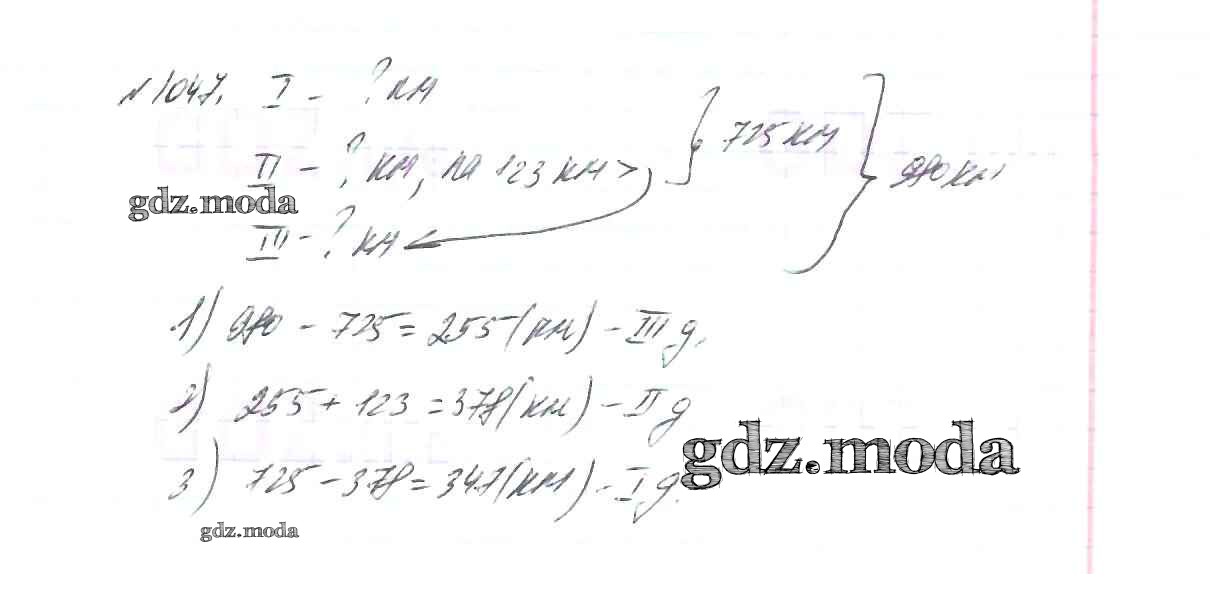 №1047. I - ? км
II - ? км, на 123 км >
725 км
980 км
gdz.moda
III - ? км
1) 980 - 725 = 255 (км) - III д.
2) 255 + 123 = 378 (км) - II д
gdz.moda
3) 725 - 378 = 347 (км) - I д.
gdz.moda